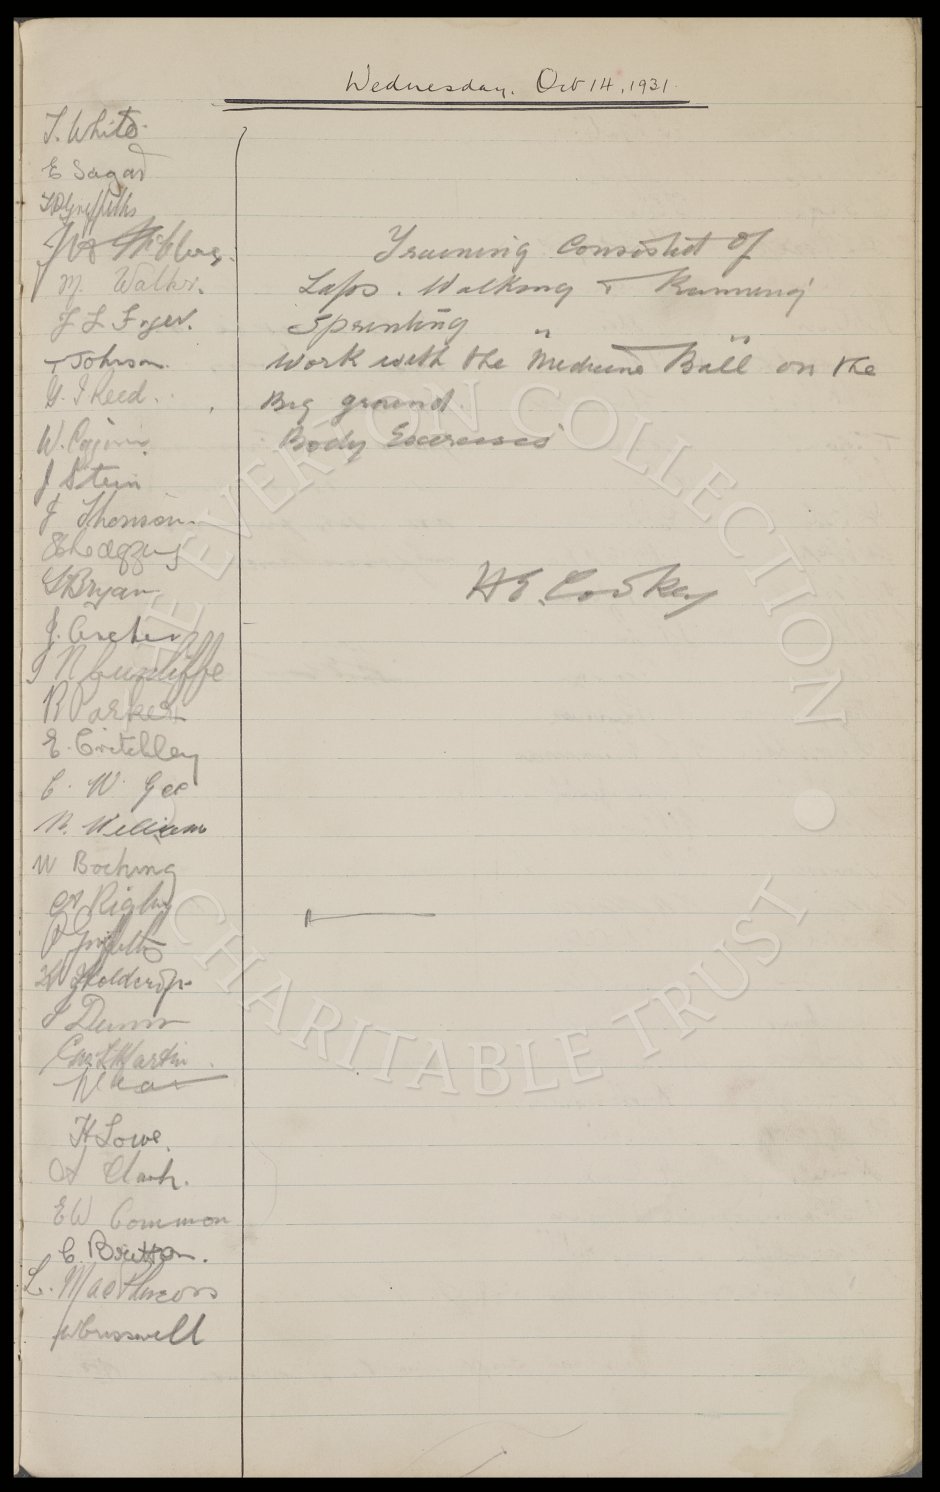 Wednesday. Oct 14, 1931.
T. White
E Sagar
T P Griffiths
M Walker.
J L Fryer.
T Johnson
G. I Reed.
W. Coggins
J Stein
J Thomson
S Bryan
J. Archer
J N Cunliffe
R Parker
E. Critchley
C. W. Gee
B. Williams
W Bocking
A Rigby
P Griffiths
H Holdcroft
J Dunn
Geo S Martin
H Lowe.
A Clark.
E W Common
C. Britton.
L. MacPherson
W Cresswell
Training Consisted Of
Laps. Walking & Running
Sprinting " "
Work with the Medicine Ball on the
Big ground.
Body Exercises
H E. Cooke
THE EVERTON COLLECTION • CHARITABLE TRUST •